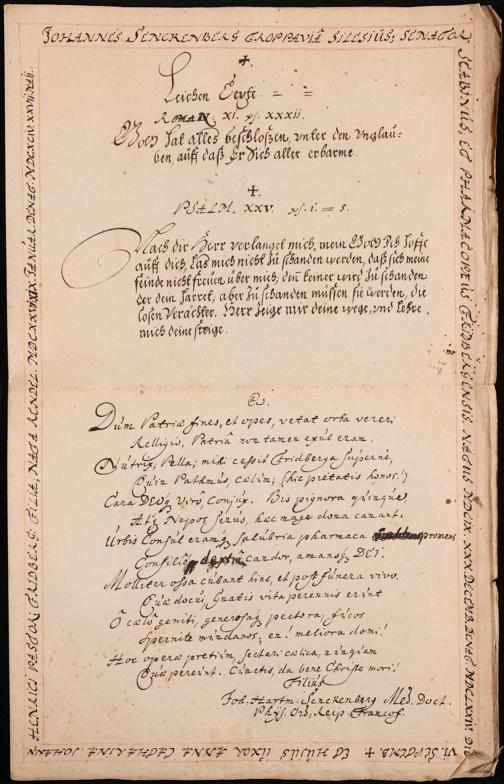 JOHANNES. SENCKENBERG TROPPAVIÂ SILESIUS; SENATOR,
SCABINUS, ET PHARMACOPOEUS FRIDBERGENSIS. NATUS
VI. SEPTEMB. + ET HUJUS UXOR ANNA CATHARINA JOHANN
HENRICI PASTOR: FRIDBERG: FILIA, NATA
+
Leichen Texte = =
ROMAN: XI. xxxii.
Gott hat alles beschloßen, vnter den Vnglau=
ben, auff daß Er Sich aller erbarme.
+
PSALM. XXV. i. = 5.
Nach dir Herr verlanget mich, mein Gott Ich hoffe
auff dich, Las mich nicht zu schanden werden, daß sich meine
feinde nicht freuen über mich, den keiner wird zu schanden
der dein harret, aber zu schanden müssen sie werden, die
losen Verächter. Herr zeige mir deine wege, vnd Lehre
mich deine steige.
Dum Patriæ fines, et opes, vetat orba vereri
Relligio, Patriâ non tamen exul eram.
Nutrix, Pella; mihi cessit Fridberga supernè,
Quin Pathmus, cælum; (hic pietatis honos!)
Cara DEOq; virô, Conjux. Bis pignora quinque,
Atq; Nepos serus, hæc mage dona canant.
Urbis Consul eramq; salubria pharmaca promens,
Consiliis candor, amansq; DEI.
Molliter ossa cubant hinc, et post funera vivo.
Quæ docui, Gnatis vita perennis erint
O cælô geniti, generosaq; pectora, fucos
Spernite mundanos; en! meliora domi!
Hoc operæ pretium, sectari cælica, nunquam
Quæ pereunt. Cunctis, da bene Christe mori!
Filius
Joh. Hartm. Senckenberg Med. Doct.
Phys. Ord. Reip. Francof.